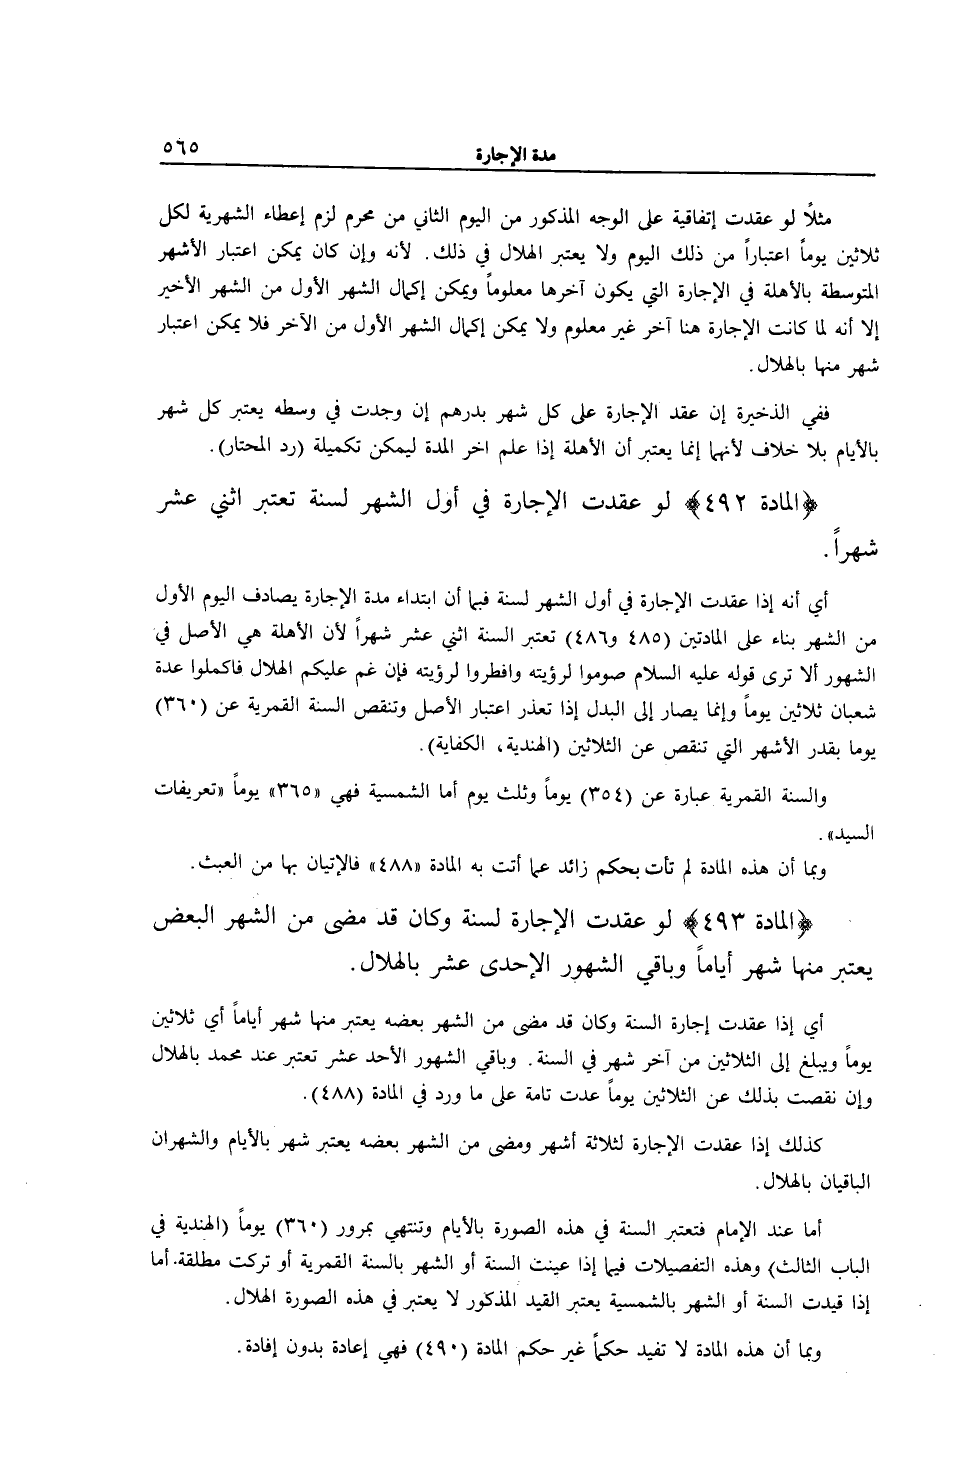 مدة الإجارة ٥٦٥
مثلاً لو عقدت إتفاقية على الوجه المذكور من اليوم الثاني من محرم لزم إعطاء الشهرية لكل
ثلاثين يوماً اعتباراً من ذلك اليوم ولا يعتبر الهلال في ذلك. لأنه وإن كان يمكن اعتبار الأشهر
المتوسطة بالأهلة في الإجارة التي يكون آخرها معلوماً ويمكن إكمال الشهر الأول من الشهر الأخير
إلا أنه لما كانت الإجارة هنا آخر غير معلوم ولا يمكن إكمال الشهر الأول من الآخر فلا يمكن اعتبار
شهر منها بالهلال.
ففي الذخيرة إن عقد الإجارة على كل شهر بدرهم إن وجدت في وسطه يعتبر كل شهر
بالأيام بلا خلاف لأنها إنما يعتبر أن الأهلة إذا علم اخر المدة ليمكن تكميلة (رد المحتار).
﴿المادة ٤٩٢﴾ لو عقدت الإجارة في أول الشهر لسنة تعتبر اثني عشر
شهراً.
أي أنه إذا عقدت الإجارة في أول الشهر لسنة فبما أن ابتداء مدة الإجارة يصادف اليوم الأول
من الشهر بناء على المادتين (٤٨٥ و٤٨٦) تعتبر السنة اثني عشر شهراً لأن الأهلة هي الأصل في
الشهور ألا ترى قوله عليه السلام صوموا لرؤيته وافطروا لرؤيته فإن غم عليكم الهلال فاكملوا عدة
شعبان ثلاثين يوماً وإنما يصار إلى البدل إذا تعذر اعتبار الأصل وتنقص السنة القمرية عن (٣٦٠)
يوما بقدر الأشهر التي تنقص عن الثلاثين (الهندية، الكفاية).
والسنة القمرية عبارة عن (٣٥٤) يوماً وثلث يوم أما الشمسية فهي «٣٦٥» يوماً «تعريفات
السيد».
وبما أن هذه المادة لم تأت بحكم زائد عما أتت به المادة «٤٨٨» فالإتيان بها من العبث.
﴿المادة ٤٩٣﴾ لو عقدت الإجارة لسنة وكان قد مضى من الشهر البعض
يعتبر منها شهر أياماً وباقي الشهور الإحدى عشر بالهلال.
أي إذا عقدت إجارة السنة وكان قد مضى من الشهر بعضه يعتبر منها شهر أياماً أي ثلاثين
يوماً ويبلغ إلى الثلاثين من آخر شهر في السنة. وباقي الشهور الأحد عشر تعتبر عند محمد بالهلال
وإن نقصت بذلك عن الثلاثين يوماً عدت تامة على ما ورد في المادة (٤٨٨).
كذلك إذا عقدت الإجارة لثلاثة أشهر ومضى من الشهر بعضه يعتبر شهر بالأيام والشهران
الباقيان بالهلال.
أما عند الإمام فتعتبر السنة في هذه الصورة بالأيام وتنتهي بمرور (٣٦٠) يوماً (الهندية في
الباب الثالث) وهذه التفصيلات فيما إذا عينت السنة أو الشهر بالسنة القمرية أو تركت مطلقة. أما
إذا قيدت السنة أو الشهر بالشمسية يعتبر القيد المذكور لا يعتبر في هذه الصورة الهلال.
وبما أن هذه المادة لا تفيد حكماً غير حكم المادة (٤٩٠) فهي إعادة بدون إفادة.